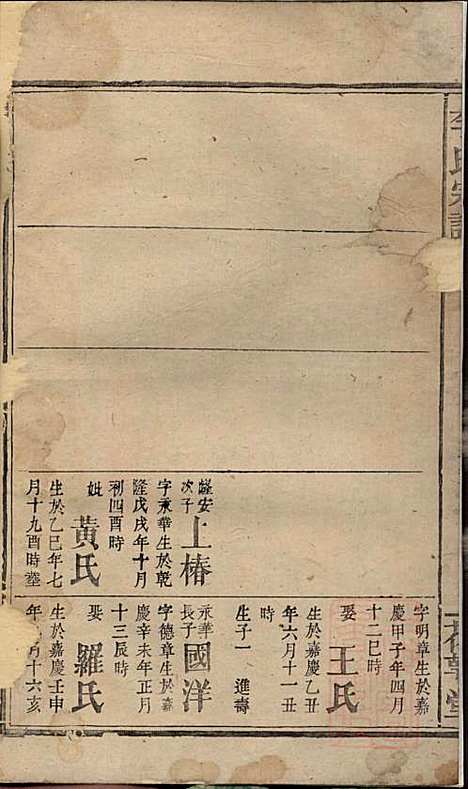 李氏宗譜
隆安
次子
上椿
字永華生於乾
隆戊戌年十月
初四酉時
妣
黃氏
生於乙巳年七
月十九酉時
字明章生於嘉
慶甲子年四月
十二巳時
娶
王氏
生於嘉慶乙丑
年六月十一丑
時
生子一 進壽
永華
長子
國洋
字德章生於嘉
慶辛未年正月
十三辰時
娶
羅氏
生於嘉慶壬申
月十六亥